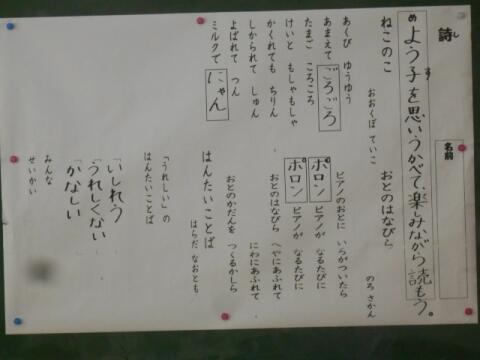 詩
し
名前
め よう子を思いうかべて、楽しみながら読もう。
す
ねこのこ
おおくぼ ていこ
あくび ゆうゆう
あまえて ごろごろ
たまご ころころ
けいと もしゃもしゃ
かくれても ちりん
しかられて しゅん
よばれて つん
ミルクで にゃん
おとのはなびら
のろ さかん
ピアノのおとに いろがついたら
ポロン ピアノが なるたびに
ポロン ピアノが なるたびに
おとのはなびら へやにあふれて
にわにあふれて
おとのかだんを つくるかしら
はんたいことば
はらだ なおとも
「うれしい」の
はんたいことば
「いしれう
「うれしくない
「かなしい
みんな
せいかい